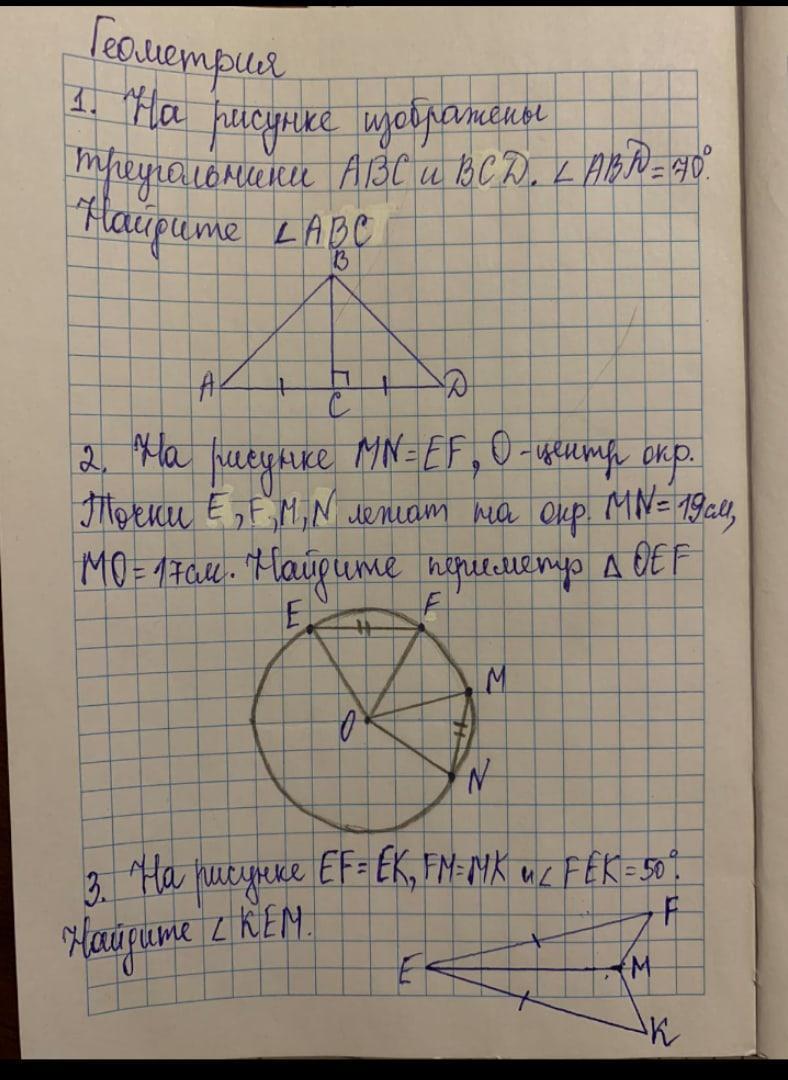 Геометрия
1. На рисунке изображены
треугольники ABC и BCD. ∠ABD=70°.
Найдите ∠ABC
B
A
C
D
2. На рисунке MN=EF, O-центр окр.
Точки E,F,M,N лежат на окр. MN=19см,
MO=17см. Найдите периметр △ OEF
E
F
M
O
N
3. На рисунке EF=EK, FM=MK и ∠FEK=50°.
Найдите ∠KEM.
F
E
M
K